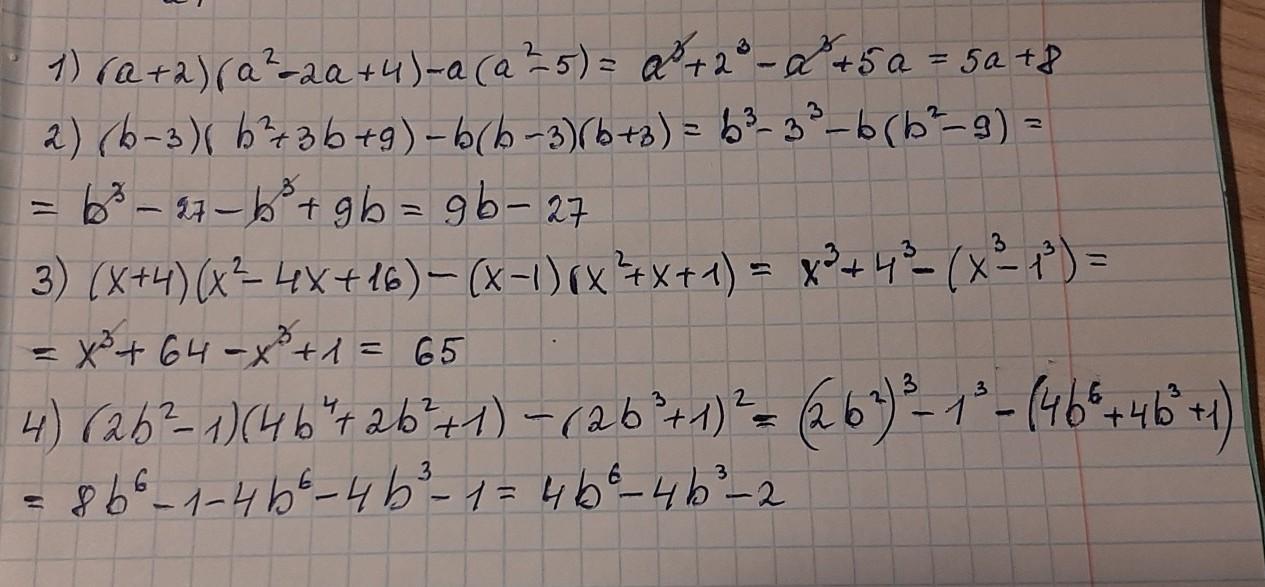 1) (a+2)(a²-2a+4)-a(a²-5) = a³+2³-a³+5a = 5a+8
2) (b-3)(b²+3b+9)-b(b-3)(b+3) = b³-3³-b(b²-9) =
= b³-27-b³+9b = 9b-27
3) (x+4)(x²-4x+16)-(x-1)(x²+x+1) = x³+4³-(x³-1³) =
= x³+64-x³+1 = 65
4) (2b²-1)(4b⁴+2b²+1)-(2b³+1)² = (2b²)³-1³-(4b⁶+4b³+1)
= 8b⁶-1-4b⁶-4b³-1 = 4b⁶-4b³-2